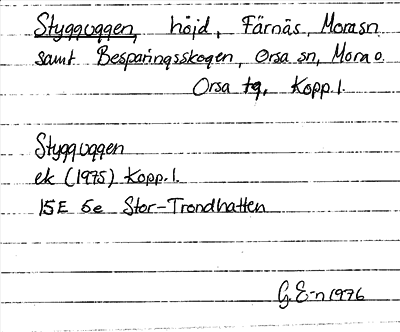 Stygguggen, höjd, Färnäs, Mora sn
samt Besparingsskogen, Orsa sn, Mora o.
Orsa tg, Kopp. l.
Stygguggen
ek (1975) Kopp. l.
15E 6e Stor-Trondhatten
G. E-n 1976